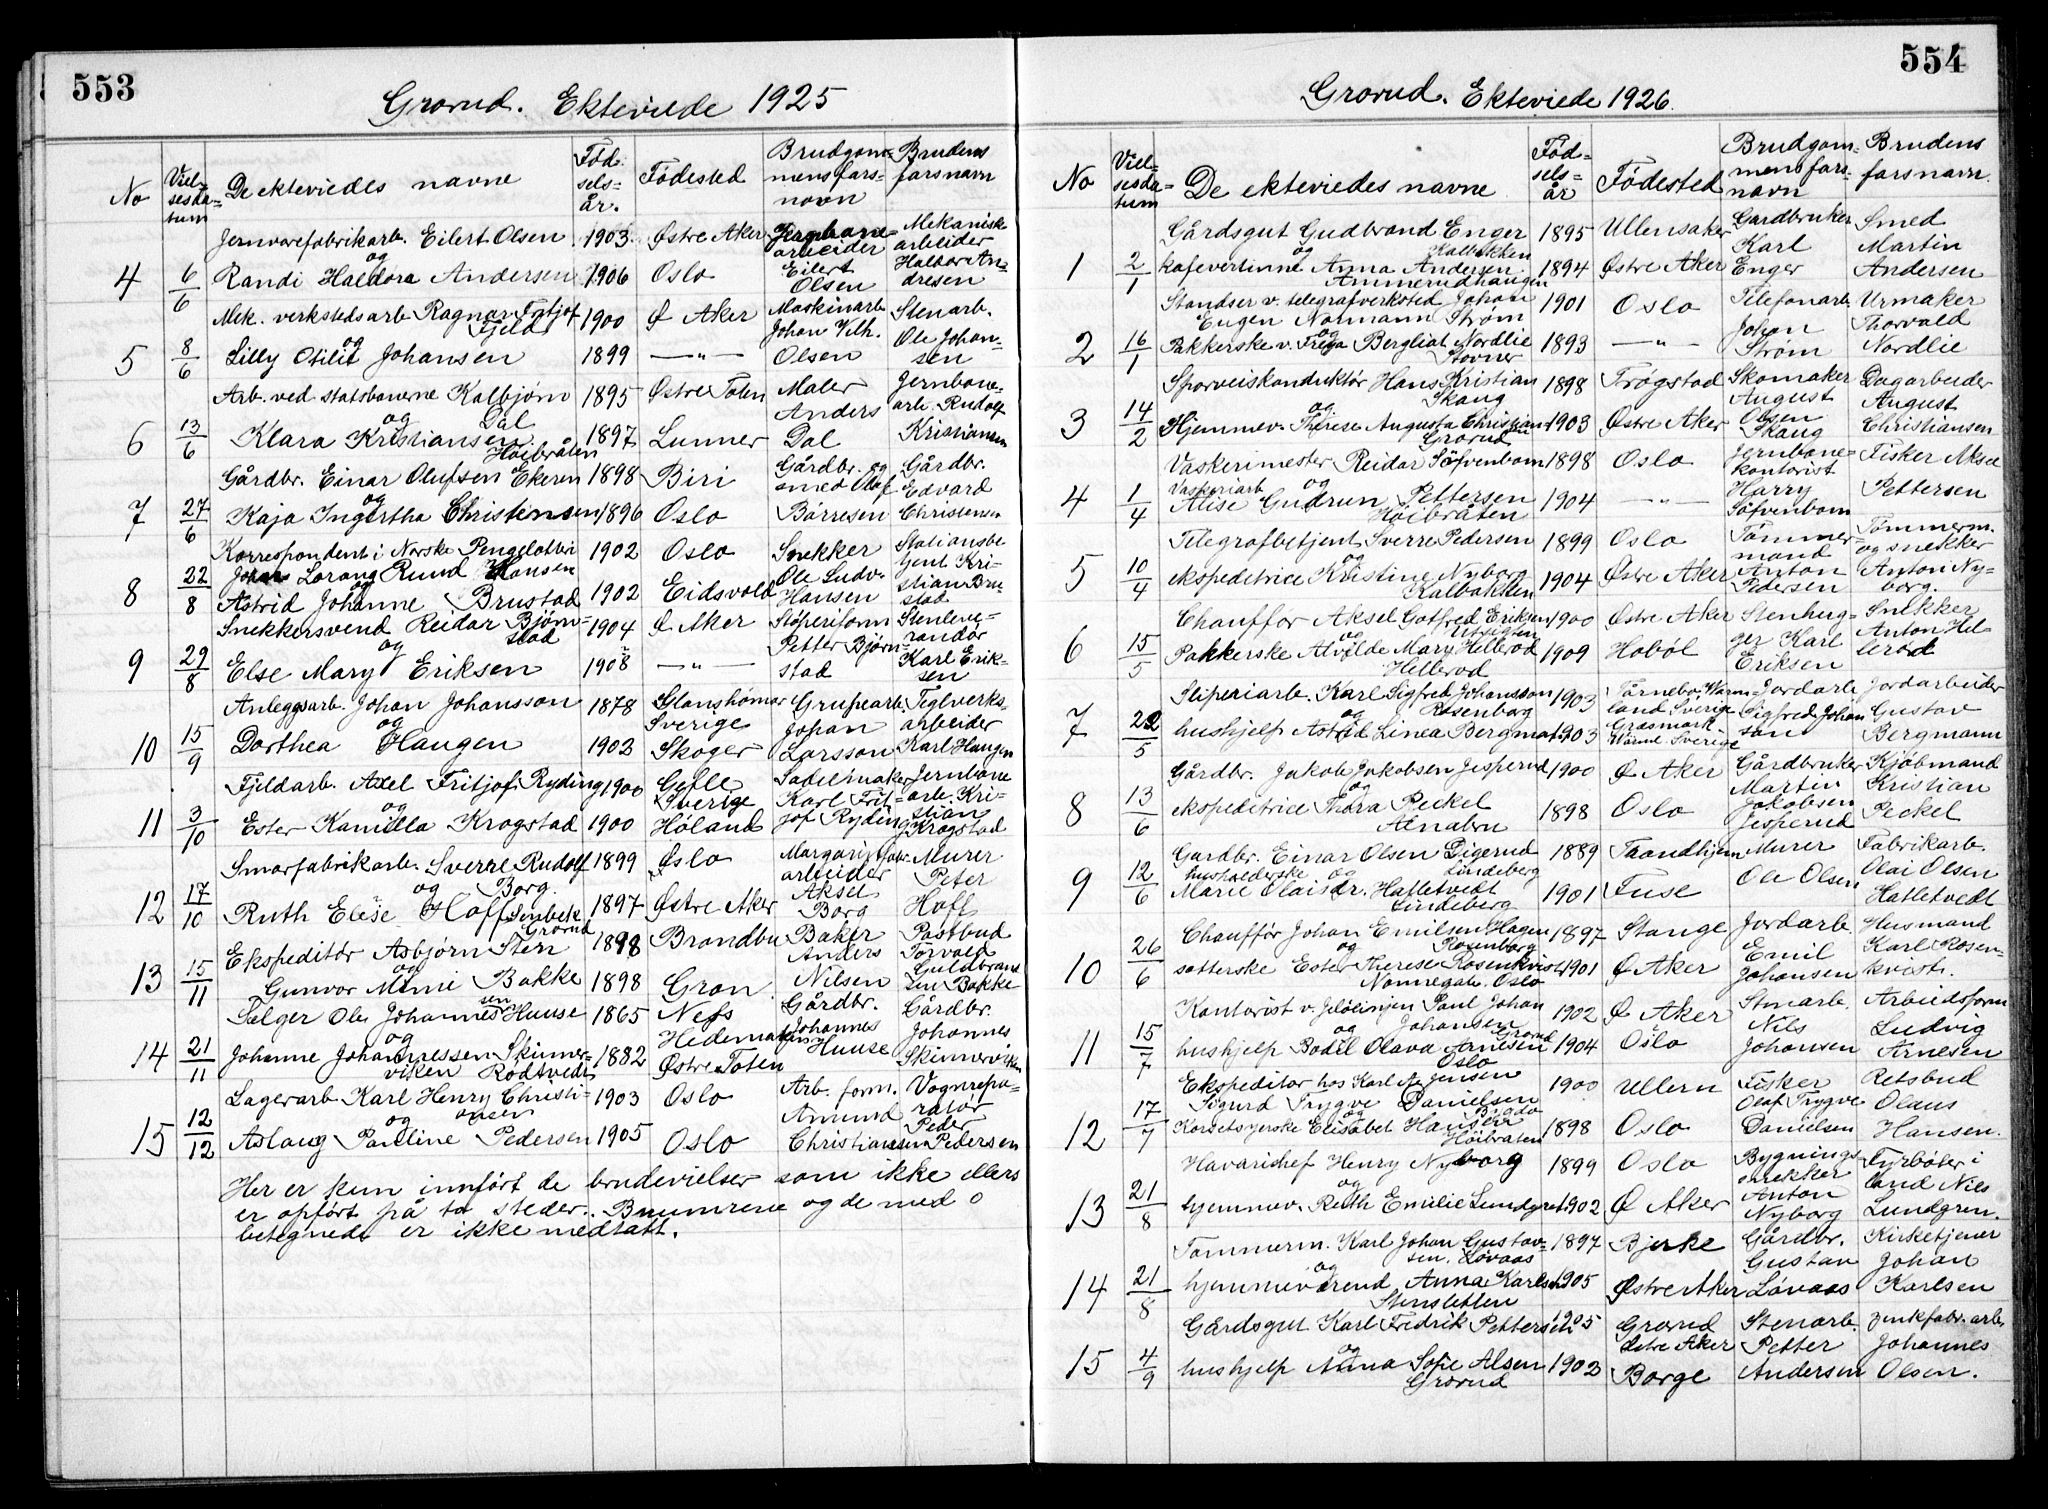 553
Grorud. Ekteviede 1925
No
Viel-
sesda-
tum
De ekteviedes navne
Fød-
sels-
år.
Fødested
Brudgom-
mens fars-
navn
Brudens
farsnavn
Jernvarefabrikarb. Eilert Olsen 1903 Østre Aker Jernbane- Mekaniske
og arbeider arbeider
4 6/6 Randi Haldora Andersen 1906 Oslo Eilert Olsen Halvor An-
dresen
Mek. verkstedsarb. Ragnar Fritjof 1900 Ø Aker Maskinarb. Stenarb.
Fjeld Johan Vilh. Ole Johan-
og
5 8/6 Lilly Otilie Johansen 1899 —"— Olsen sen
Arb. ved statsbanerne Kolbjørn 1895 Østre Toten Maler Jernbane-
og Dal Anders arb. Rudolf
6 13/6 Klara Kristiansen 1897 Lunner Dal Kristiansen
Høibråten
Gårdbr. Einar Olufsen Ekeren 1898 Biri Gårdbr. og Gårdbr.
og smed Olaf Edvard
7 27/6 Kaja Ingertha Christensen 1896 Oslo Børresen Christensen
Korrespondent i Norske Pengelotteri 1902 Oslo Snekker Stationsbe
Johan Lorang Rund Hansen Ole Ludv. tjent Kri-
og
8 22/8 Astrid Johanne Brustad 1902 Eidsvold Hansen stian Bru-
stad
Snekkersvend Reidar Bjørn- 1904 Ø Aker Støperiform Stenleve-
stad Petter Bjørn- randør
og
9 29/8 Else Mary Eriksen 1908 —"— stad Karl Erik-
sen
Anleggsarb. Johan Johansson 1878 Glanshømar Grupearb. Teglverks-
og Sverige Johan arbeider
10 15/9 Dorthea Haugen 1902 Skoger Larsson Karl Haugen
Fjeldarb. Axel Fritjof Ryding 1900 Gefle Sadelmaker Jernbane
og Sverige Karl Frit- arb. Kri-
stian
11 3/10 Ester Kamilla Krogstad 1900 Høland jof Ryding Krogstad
Smørfabrikarb. Sverre Rudolf 1899 Oslo Margarinfabr. Murer
og Borg. arbeider Peter
12 17/10 Ruth Elise Hoff 1897 Østre Aker Aksel Borg Hoff
Grorud
Ekspeditør Asbjørn Sten 1898 Brandbu Baker Postbud
og Anders Torvald
13 15/11 Gunvor Mimi Bakke 1898 Gran Nilsen Guldbrand
sen Bakke
Selger Ole Johannessen Huuse 1865 Nes Gårdbr. Gårdbr.
og Hedemarken Johannes Johannes
14 21/11 Johanne Johannessen Skinner- 1882 Østre Toten Huuse Skinnerviken
viken Rødtvedt
Lagerarb. Karl Henry Christi- 1903 Oslo Arb. form. Vognrepa-
og ansen Amund ratør
15 12/12 Aslaug Pauline Pedersen 1905 Oslo Christiansen Peder Pedersen
Her er kun innført de brudevielser som ikke ellers
er opført på to steder. Brumrene og de med o
betegnede er ikke medtatt.
554
Grorud. Ekteviede 1926.
No
Viel-
sesda-
tum
De ekteviedes navne
Fød-
sels-
år
Fødested
Brudgom-
mens fars-
navn
Brudens
farsnavn.
Gårdsgut Gudbrand Enger 1895 Ullensaker Gardbruker Smed
og Kalbakken Karl Martin
1 2/1 kafevertinne Anna Andersen 1894 Østre Aker Enger Andersen
Ammerudhaugen
Standser v. telegrafverksted Johan 1901 Oslo Telefonarb Urmaker
Eugen Normann Strøm Johan Thorvald
og
2 16/1 Pakkerske v. Freya Bergliot Nordlie 1893 —"— Strøm Nordlie
Stovner
Sporveiskonduktør Hans Kristian 1898 Trøgstad Skomaker Dagarbeider
Skaug August August
og
3 14/2 Hjemmev. Therese Augusta Christiansen 1903 Østre Aker Olsen Skaug Christiansen
Grorud
Vaskerimester Reidar Söfvenbom 1898 Oslo Jernbane- Fisker Aksel
Vaskeriarb. og kontorist
4 1/4 Alise Gudrun Pettersen 1904 —"— Harry Söfvenbom Pettersen
Høibråten
Telegrafbetjent Sverre Pedersen 1899 Oslo Tømmer- Tømmerm.
og mand og snekker
5 10/4 ekspeditrice Kristine Nyborg 1904 Østre Aker Anton Pedersen Anton Ny-
borg.
Kalbakken
Chauffør Aksel Gotfred Eriksen 1900 Østre Aker Stenhug- Snekker
og Utsigten ger Karl Anton Hel-
6 15/5 Pakkerske Alvilde Mary Hellerod 1909 Hobøl Eriksen lerod
Hellerod
Sliperiarb. Karl Sigfred Johansson 1903 Tårnebo, Värm- Jordarb. Jordarbeider
og Rosenborg land Sverige Sigfred Johan Gustav
7 22/5 hushjelp Astrid Linea Bergman 1903 Gräsmark Värml. Sverige son Bergmann
Gårdbr. Jakob Jakobsen Jesperud 1900 Ø Aker Gårdbruker Kjøbmand
Martin Kristian
8 13/6 ekspeditrice Thora Peckel 1898 Oslo Jakobsen Jesperud Peckel
Alnabru
Gardbr. Einar Olsen Digerud 1889 Trondhjem Murer Fabrikarb.
husholderske og Lindeberg Olai Olsen
9 12/6 Marie Olaisdr. Hatletvedt 1901 Fuse Ole Olsen Hatletvedt
Lindeberg
Chauffør Johan Emilsen Hagen 1897 Stange Jordarb. Husmand
og Rosenborg Emil Karl Rosen-
10 26/6 satterske Ester Therese Rosenkvist 1901 Ø Aker Johansen kvist.
Nonnegata, Oslo
Kontorist v. Jeløilinjen Paul Johan 1902 Ø Aker Stenarb. Arbeidsform
og Johansen Grorud Nils Ludvig
11 15/7 hushjelp Bodil Olava Arnesen 1904 Oslo Johansen Arnesen
Oslo
Ekspeditør hos Karl A. Jensen 1900 Ullern Fisker Retsbud
Sigurd Trygve Danielsen Olaf Trygve Olaus
og
12 17/7 Korsetsyerske Elisabet Hansen 1898 Oslo Danielsen Hansen.
Høibråten
Havarichef Henry Nyborg 1899 Oslo Bygnings- Fyrbøter i
og snekker land Nils
13 21/8 hjemmev. Ruth Emilie Lundgren 1902 Ø Aker Anton Nyborg Lundgren.
Tømmerm. Karl Johan Gustav- 1897 Bjerke Gårdbr. Kirketjener
sen Løvaas Gustav Johan
og
14 21/8 hjemmeværend Anna Karlsen 1905 Østre Aker Løvaas Karlsen
Stensletten
Gårdsgut Karl Fredrik Pettersen 1905 Grorud Stenarb. Zinkfabr.arb.
og Østre Aker Petter Johannes
15 4/9 hushjelp Anna Sofie Olsen 1902 Borge Andersen Olsen.
Grorud